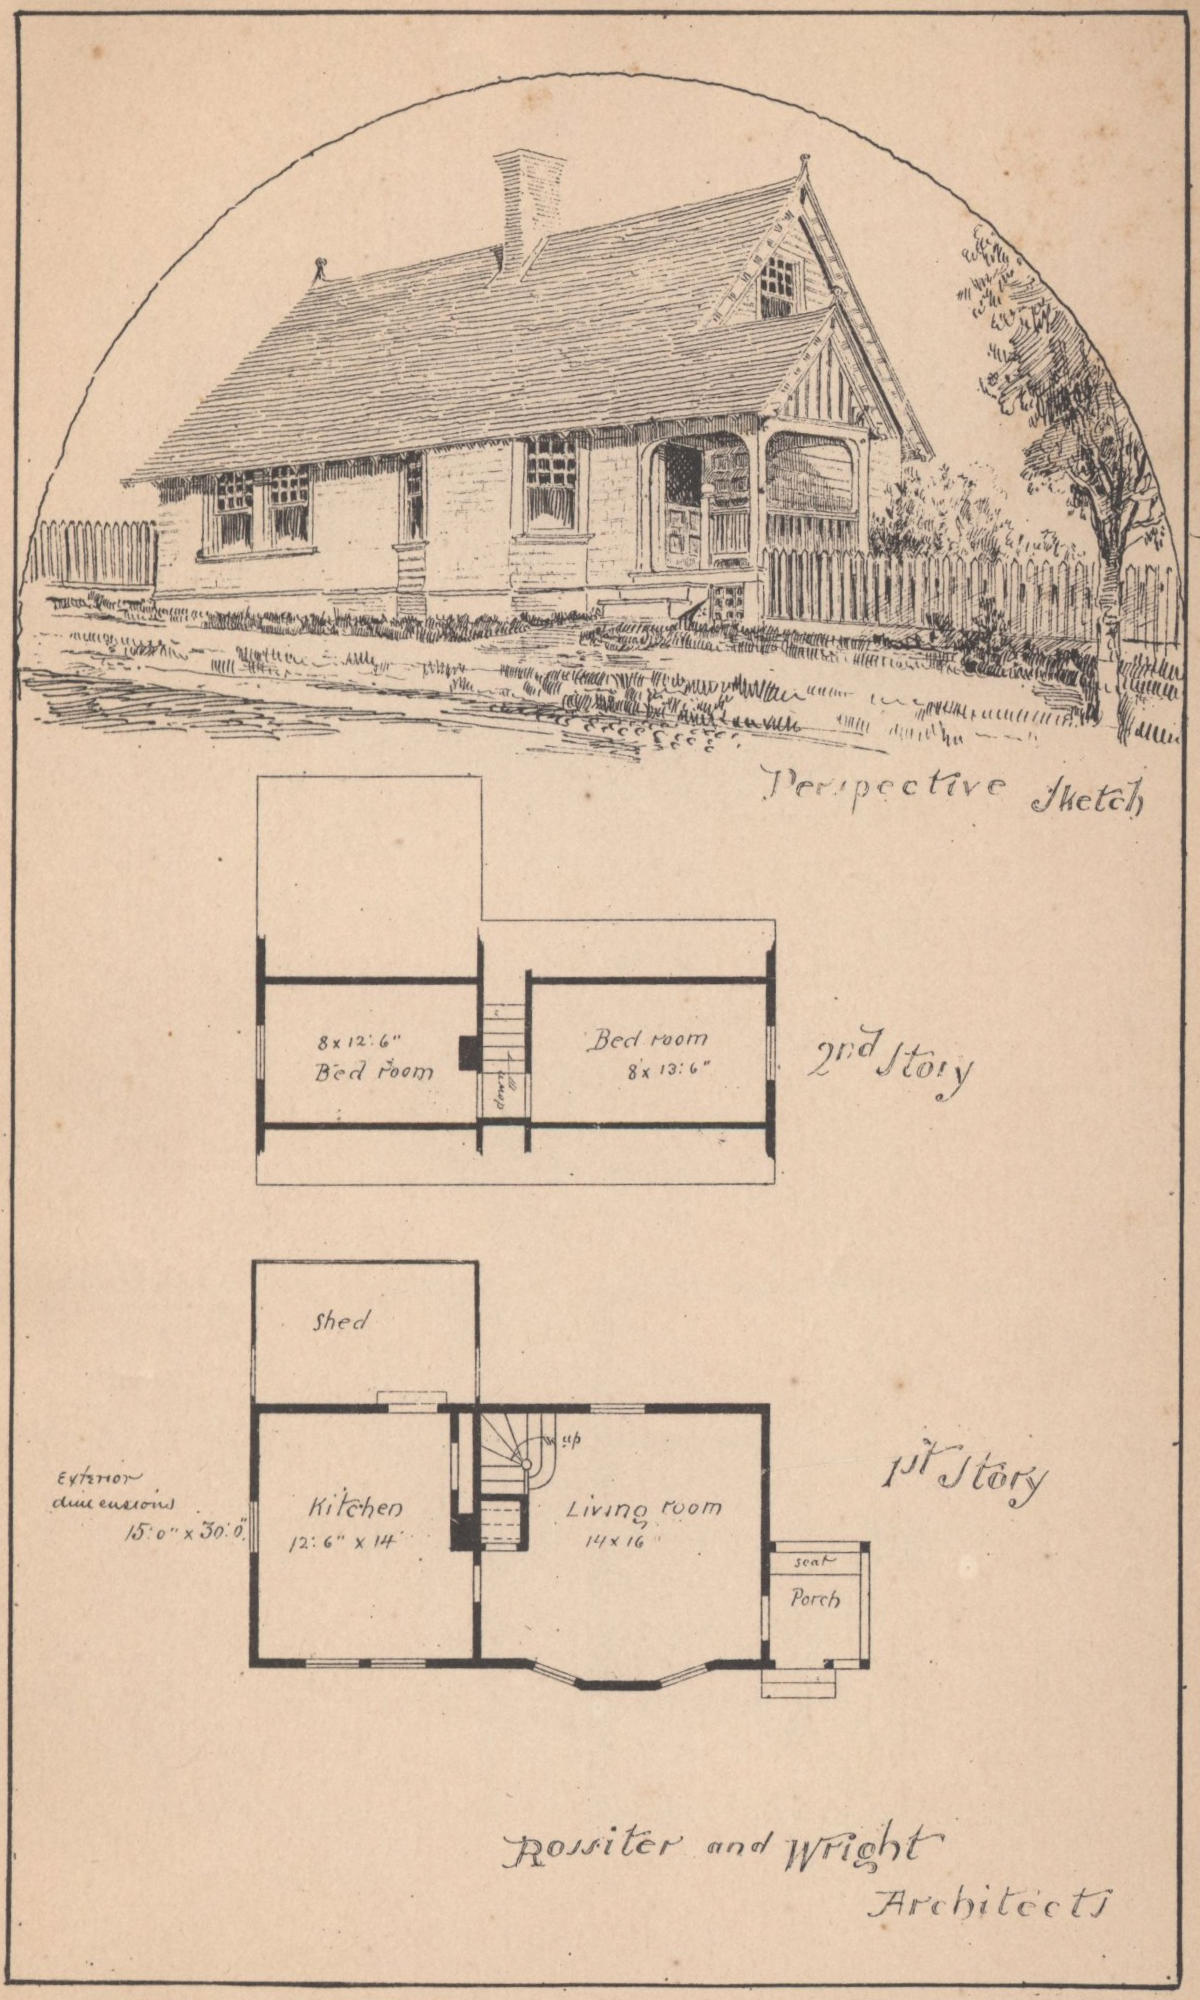 Perspective Sketch
8 x 12'.6"
Bed room
Bed room
8 x 13'.6"
down
2nd Story
Shed
up
Exterior
dimensions
15'.0" x 30'.0"
Kitchen
12'.6" x 14'
Living room
14 x 16
1st Story
seat
Porch
Rossiter and Wright
Architects